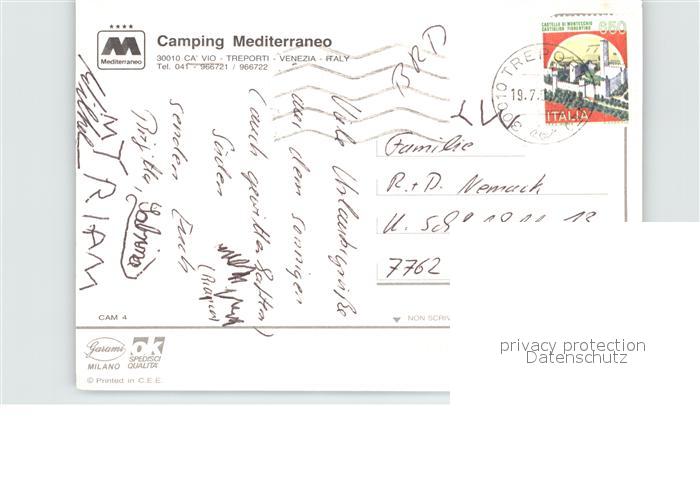 ★★★★
Mediterraneo
Camping Mediterraneo
30010 CA' VIO - TREPORTI - VENEZIA - ITALY
Tel. 041 - 966721 / 966722
CASTELLO DI MONTECCHIO
CASTIGLION FIORENTINO
650
ITALIA
30010 TREPO
19.7.
Viele Urlaubsgrüße
aus dem sonnigen
(auch gewitterhaften)
Süden
senden Euch
Sabrina
MIRIAM
Familie
R.+D. Nemack
7762
CAM 4
NON SCRIV
Garami
MILANO
OK
SPEDISCI
QUALITÀ
© Printed in C.E.E.
privacy protection
Datenschutz